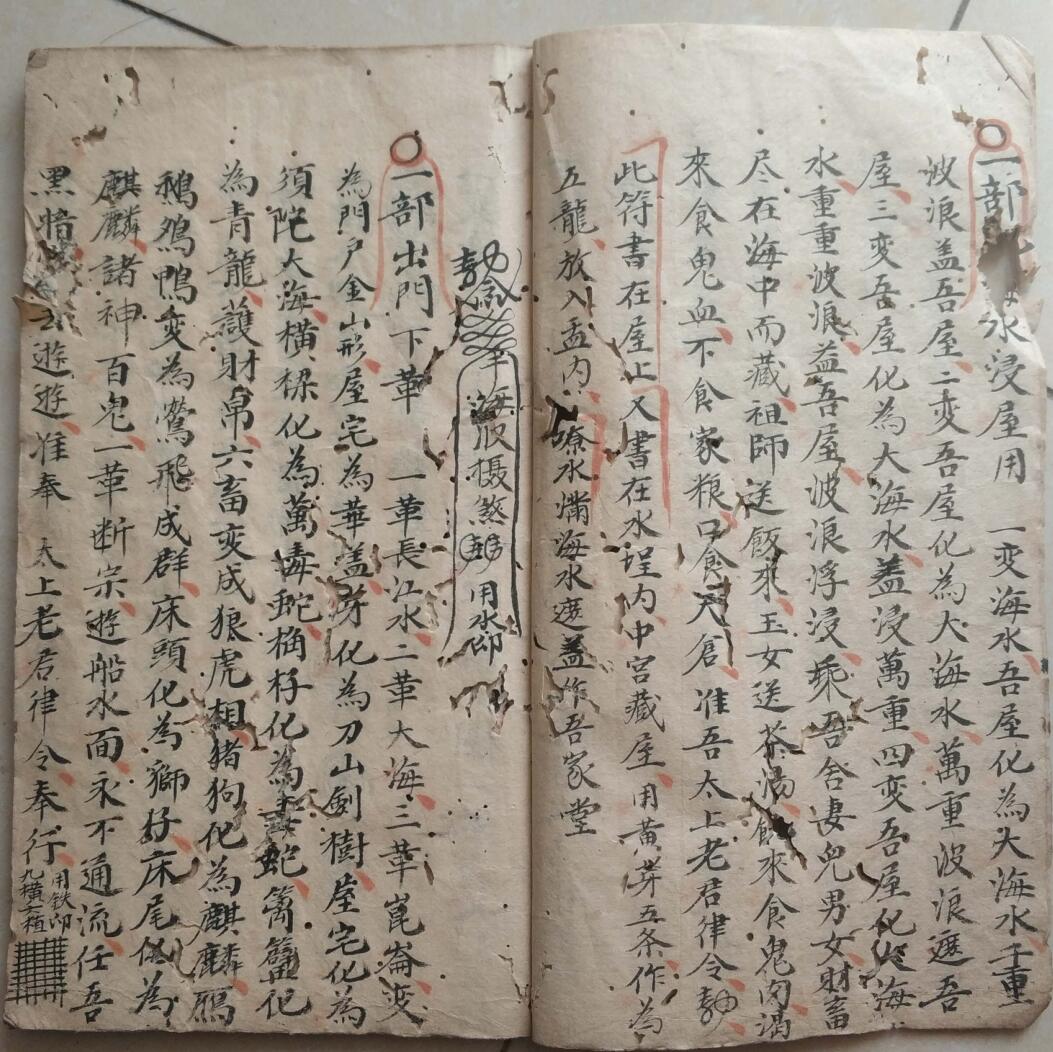 一部 水浸屋用 一变海水吾屋化為大海水千重
波浪盖吾屋二变吾屋化為大海水萬重波浪遮吾
屋三变吾屋化為大海水蓋浸萬重四变吾屋化 海
水重重波浪益吾屋波浪浮浸乘吾舍妻兒男女財畜
尽在海中而藏祖師送飯來玉女送茶湯 來食鬼肉渴
來食鬼血不食家粮口食天倉准吾太上老君律令勅
此符書在屋上又書在水埕内中宮藏屋用黄茅五条作為
五龍放入盂内 水满海水遮盖作吾家堂
勅 海水收摄煞 用水印
一部出門下華 一華長江水二華大海三華崑崙变
為門户金山形屋宅為華蓋芽化為刀山劍樹屋宅化為
須陀大海横樑化為萬毒蛇桷杍化為 蛇篱 化
為青龍護財帛六畜变成狼虎相猪狗化為麒麟鴈
鵝鴉鴨变為鶯飛成群床頭化為獅好床尾 為
麒麟諸神百鬼一華断宗遊船水面永不通流任吾
黑暗 遊遊准奉 太上老君律令奉行
用铁印
九横六植